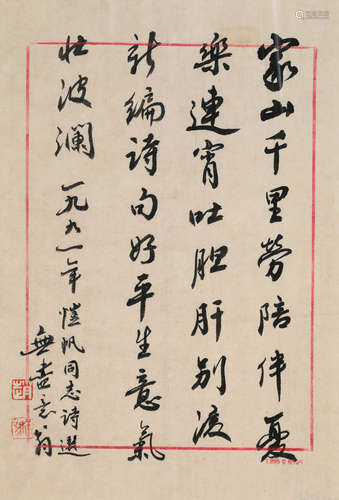 家山千里勞陪伴憂
樂連宵吐胆肝別後
新編詩句好平生意氣
壯波瀾 一九九一年 愷帆同志詩選
無盡意翁